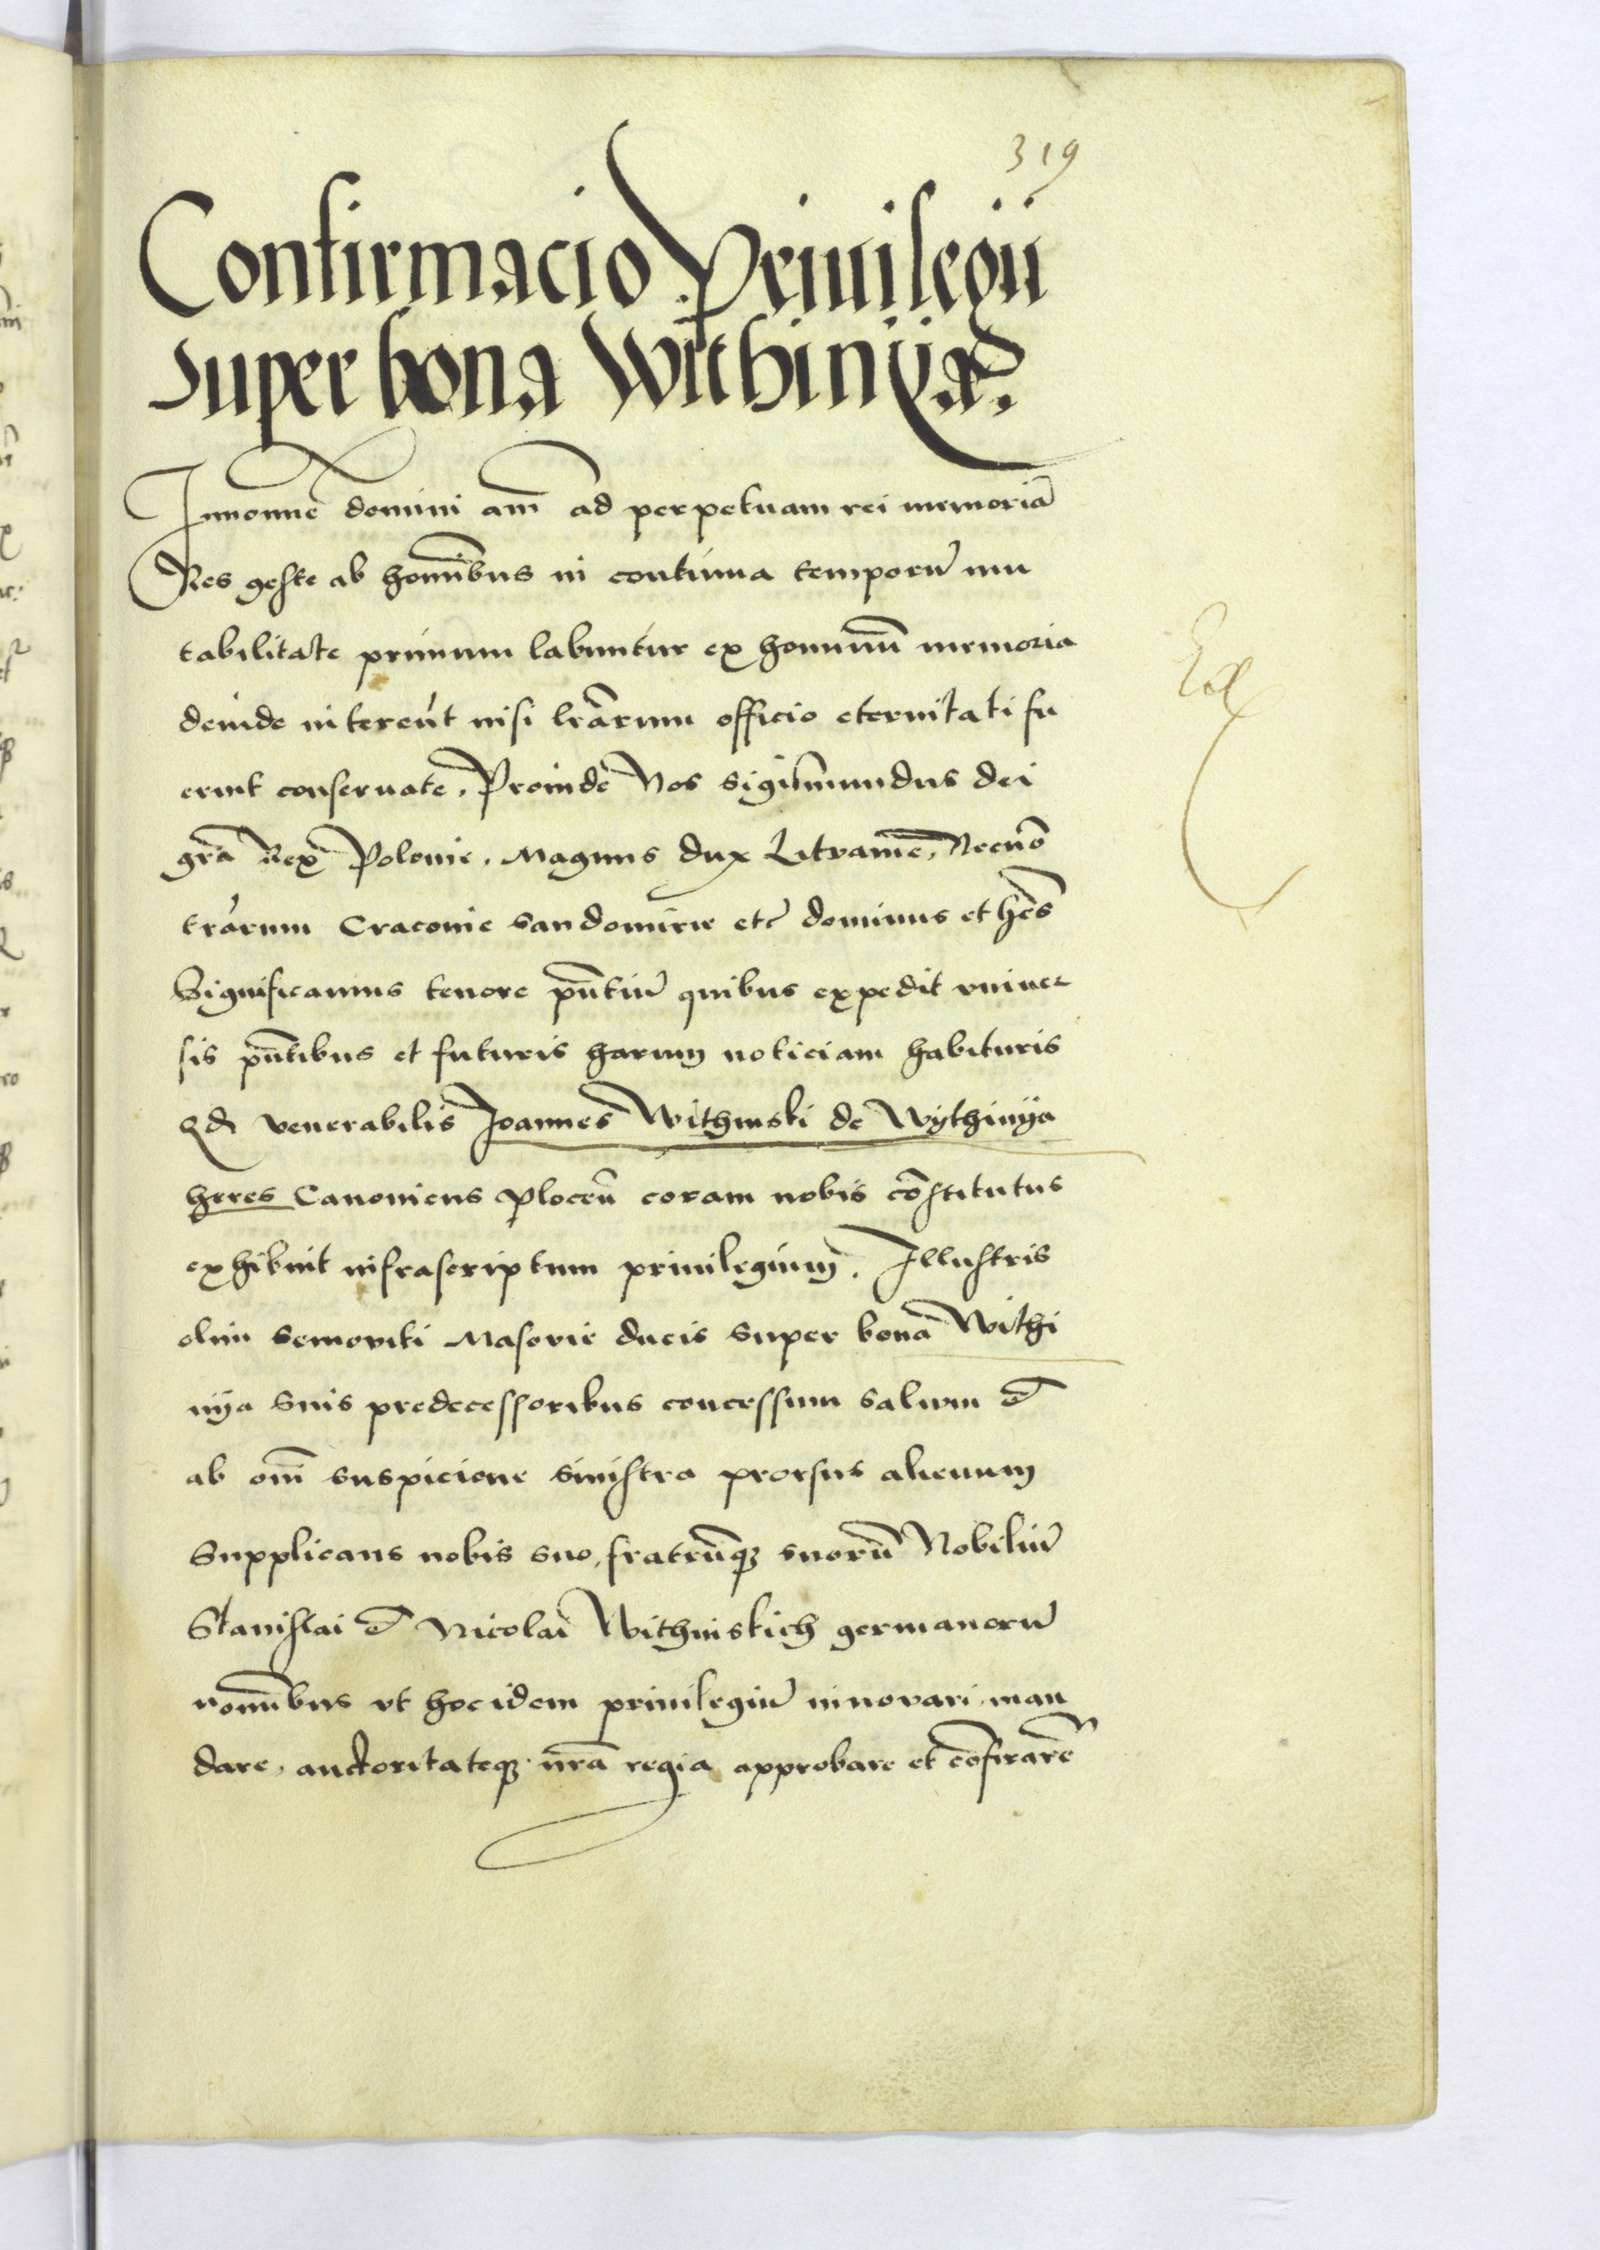 319
Confirmacio Privilegii
super bona Withinÿa.
Innomīe domini am̄ ad perpetuam rei memoriā
Res geste ab homībus in continua temporū mu
tabilitate primum labuntur ex hominū memoria
deinde intereūt nisi lrārum officio eternitati fu
erint conseruate. Proinde Nos Sigismundus dei
grā Rex Polonie. Magnus dux Lituanie. Necnō
trārum Cracouie Sandomirie etc̄ dominus et hēs
Significamus tenore pn̄tiū quibus expedit vniuer
sis pn̄tibus et futuris harum noticiam habituris
Qd venerabilis Joannes Withinski de Wythinÿa
heres Canonicus plocen̄ coram nobis cōstitutus
exhibuit infrascriptum priuilegium. Illustris
olim Semouiti Masouie ducis super bona Withi
nÿa suis predecessoribus concessum saluum et
ab om̄i suspicione sinistra prorsus alienum
Supplicans nobis suo, fratrūq suorū Nobiliū
Stanislai et Nicolai Withinskich germanorū
nomībus vt hoc idem priuilegiū innouari man
dare, auctoritateq nrā regia approbare et cōfirmarē